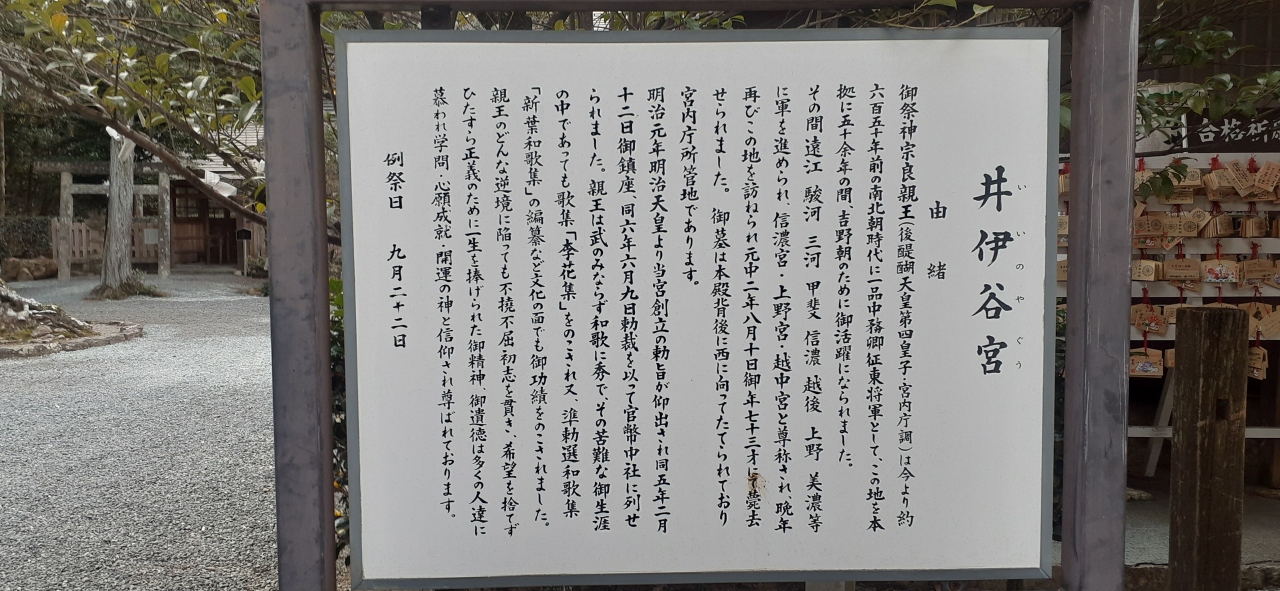 井伊谷宮
いいのやぐう
由緒
御祭神宗良親王(後醍醐天皇第四皇子・宮内庁調)は今より約
六百五十年前の南北朝時代に一品中務卿征東将軍として、この地を本
拠に五十余年の間、吉野朝のために御活躍になられました。
その間遠江 駿河 三河 甲斐 信濃 越後 上野 美濃等
に軍を進められ、信濃宮・上野宮・越中宮と尊称され、晩年
再びこの地を訪ねられ元中二年八月十日御年七十三才にて薨去
せられました。 御墓は本殿背後に西に向ってたてられており
宮内庁所管地であります。
明治元年明治天皇より当宮創立の勅旨が仰出され同五年二月
十二日御鎮座、同六年六月九日勅裁を以って官幣中社に列せ
られました。親王は武のみならず和歌に秀で、その苦難な御生涯
の中であっても歌集「李花集」をのこされ又、準勅選和歌集
「新葉和歌集」の編纂など文化の面でも御功績をのこされました。
親王のどんな逆境に陥っても不撓不屈・初志を貫き、希望を捨てず
ひたすら正義のために一生を捧げられた御精神、御遺徳は多くの人達に
慕われ学問・心願成就・開運の神と信仰され尊ばれております。
例祭日 九月二十二日